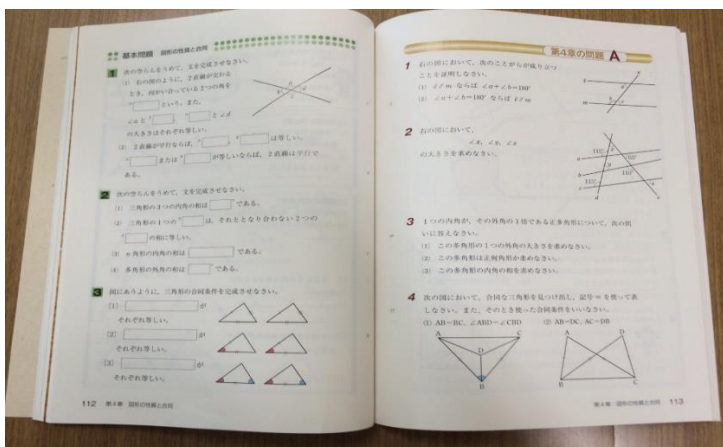 基本問題 図形の性質と合同
1 次の空らんをうめて，文を完成させなさい。
(1) 右の図のように，2直線が交わる
とき，向かい合っている2つの角を
という。また，
∠aと ， と∠d
の大きさはそれぞれ等しい。
(2) 2直線が平行ならば， ， は等しい。
または が等しいならば，2直線は平行で
ある。
2 次の空らんをうめて，文を完成させなさい。
(1) 三角形の3つの内角の和は である。
(2) 三角形の1つの は，それととなり合わない2つの
の和に等しい。
(3) n角形の内角の和は である。
(4) 多角形の外角の和は である。
3 図にあうように，三角形の合同条件を完成させなさい。
(1) が
それぞれ等しい。
(2) が
それぞれ等しい。
(3) が
それぞれ等しい。
112 第4章 図形の性質と合同
第4章の問題 A
1 右の図において，次のことがらが成り立つ
ことを証明しなさい。
(1) ℓ∥m ならば ∠a+∠b=180°
(2) ∠a+∠b=180° ならば ℓ∥m
2 右の図において，
の大きさを求めなさい。
3 1つの内角が，その外角の3倍である正多角形について，次の問
いに答えなさい。
(1) この多角形の1つの外角の大きさを求めなさい。
(2) この多角形は正何角形か求めなさい。
(3) この多角形の内角の和を求めなさい。
4 次の図において，合同な三角形を見つけ出し，記号≡を使って表
しなさい。また，そのとき使った合同条件をいいなさい。
(1) AB=BC，∠ABD=∠CBD (2) AB=DC，AC=DB
A C A D
D
B B C
第4章 図形の性質と合同 113